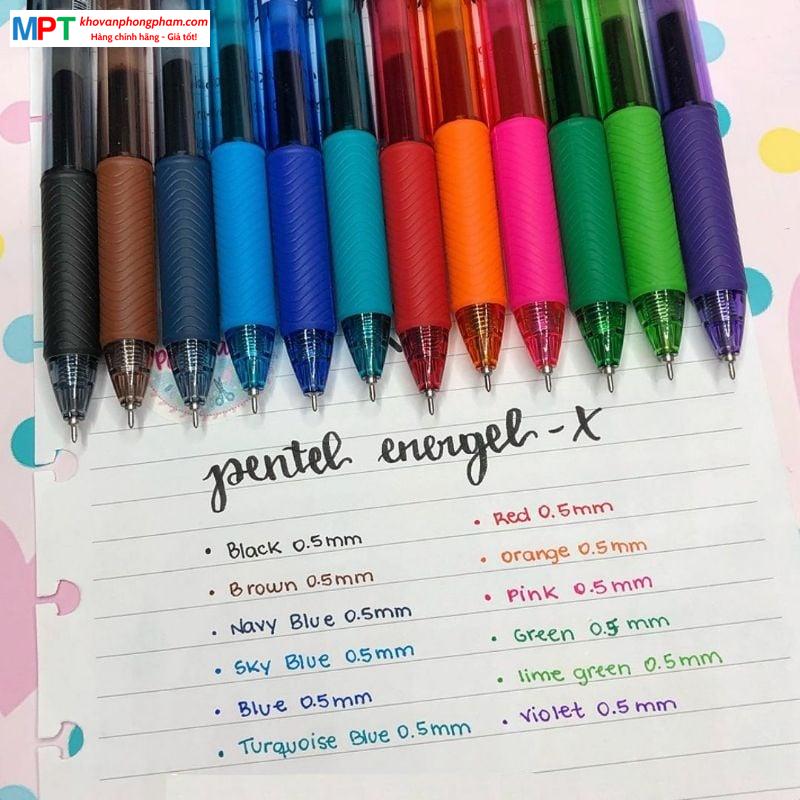 MPT khovanphongpham.com
Hàng chính hãng - Giá tốt!
pentel energel-x
• Black 0.5mm
• Brown 0.5mm
• Navy Blue 0.5mm
• Sky Blue 0.5mm
• Blue 0.5mm
• Turquoise Blue 0.5mm
• Red 0.5mm
• orange 0.5mm
• Pink 0.5mm
• Green 0.5mm
• lime green 0.5mm
• violet 0.5mm